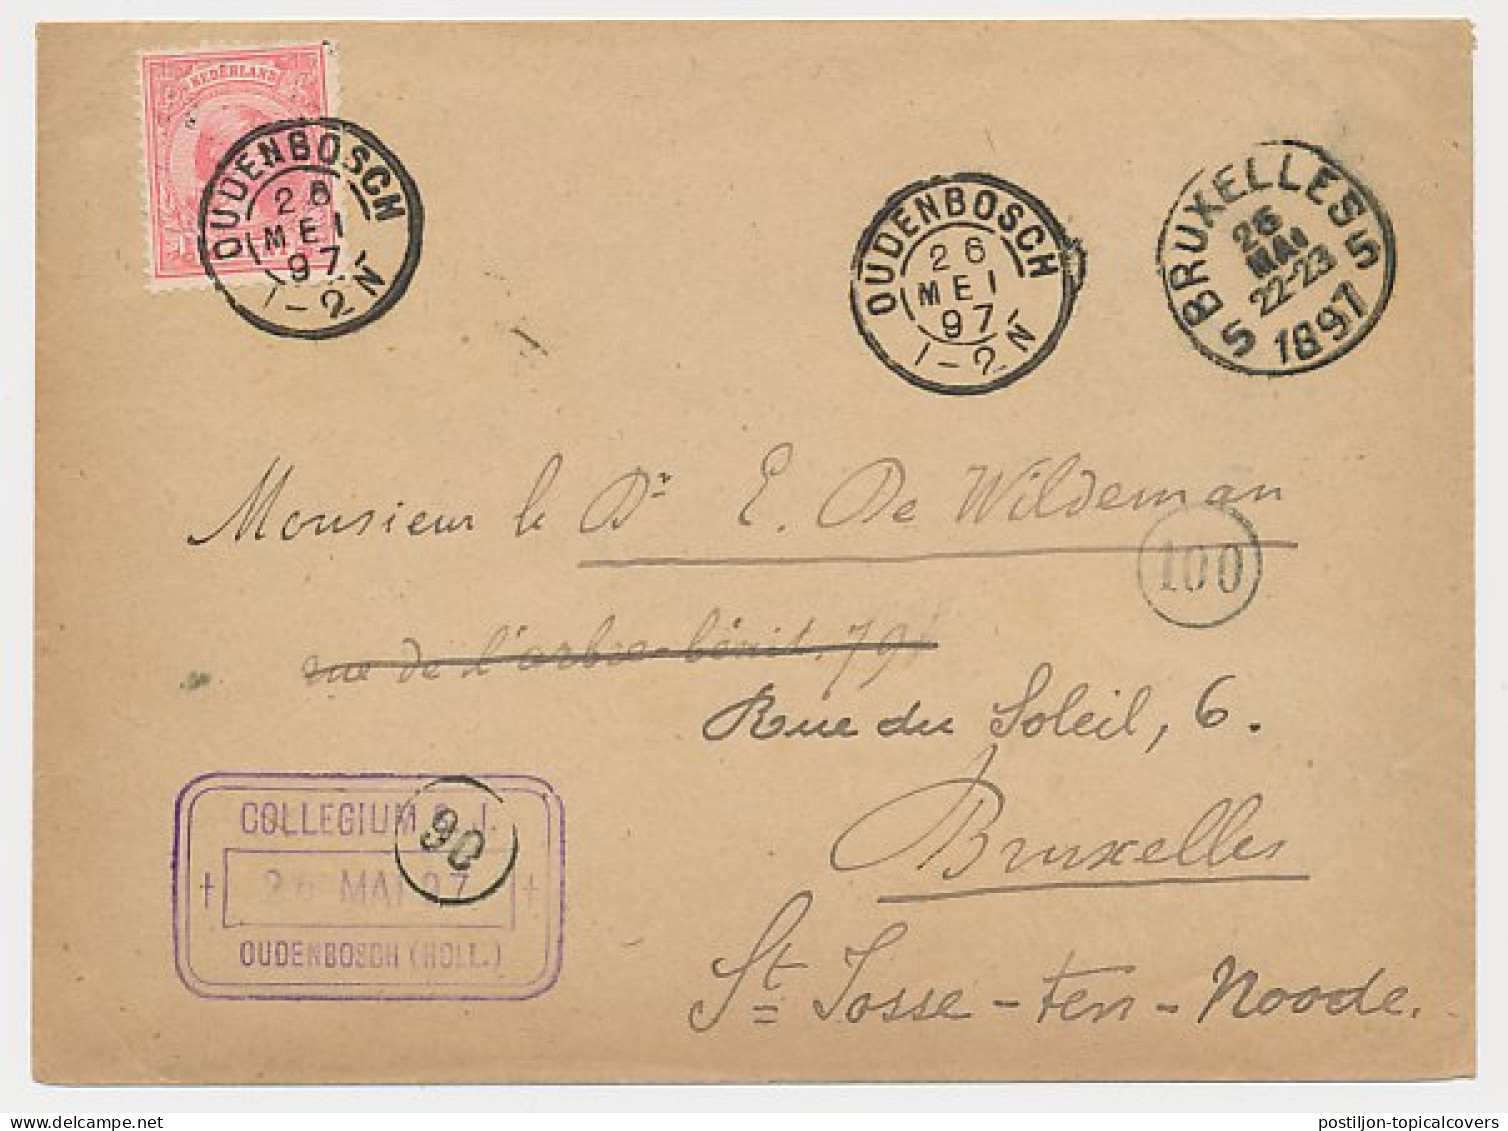 NEDERLAND
OUDENBOSCH
26
MEI
97
1-2N
OUDENBOSCH
26
MEI
97
1-2N
BRUXELLES
26
MAI
22-23
5 1897 5
Monsieur le Dr E. De Wildeman
100
rue de l'arbre-bénit, 79
Rue du Soleil, 6.
Bruxelles
St Josse-ten-Noode.
COLLEGIUM S. J.
90
† 26 MAI 97 †
OUDENBOSCH (HOLL.)
postiljon-topicalcovers